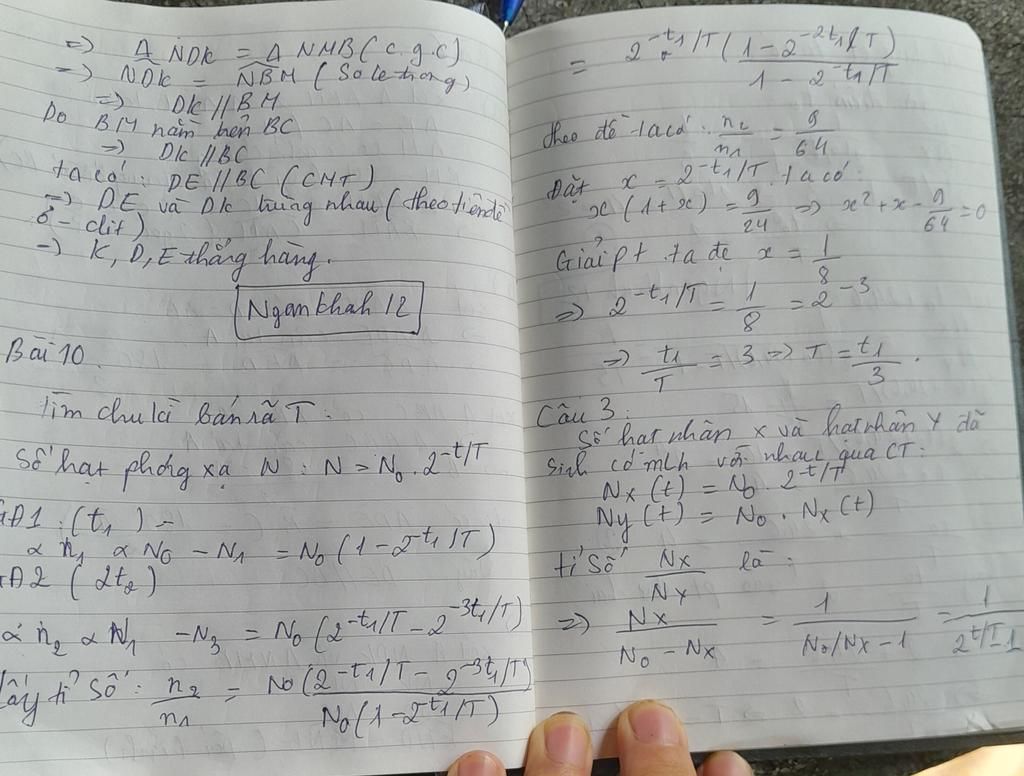 => Δ NDK = Δ NMB (c.g.c)
=> NDK = NBM (So le trong)
=> DK // BM
Do BM nằm trên BC
=> DK // BC
ta có : DE // BC (CMT)
=> DE và DK trùng nhau (theo tiên đề
Ơ-clit)
=> K, D, E thẳng hàng.
Ngankhah 12
Bài 10.
Tìm chu kì bán rã T :
Số hạt phóng xạ N : N = N₀ . 2^-t/T
GĐ1 : (t₁) -
∝ n₁ ∝ N₀ - N₁ = N₀ (1 - 2^-t₁/T)
GĐ2 (2t₂)
∝ n₂ ∝ N₁ - N₃ = N₀ (2^-t₁/T - 2^-3t₁/T)
Lấy tỉ số : n₂/n₁ = N₀ (2^-t₁/T - 2^-3t₁/T) / N₀ (1 - 2^-t₁/T)
= 2^-t₁/T (1 - 2^-2t₁/T / 1 - 2^-t₁/T)
theo đề ta có : n₂/n₁ = 9/64
Đặt x = 2^-t₁/T . ta có
x (1 + x) = 9/24 => x² + x - 9/64 = 0
Giải pt ta đc x = 1/8
=> 2^-t₁/T = 1/8 = 2^-3
=> t₁/T = 3 => T = t₁/3 .
Câu 3 :
Số hạt nhân X và hạt nhân Y đã
sinh có mlh với nhau qua CT :
Nx (t) = N₀ . 2^-t/T
Ny (t) = N₀ . Nx (t)
tỉ số Nx/Ny là :
=> Nx / N₀ - Nx = 1 / N₀/Nx - 1 = 1 / 2^t/T - 1